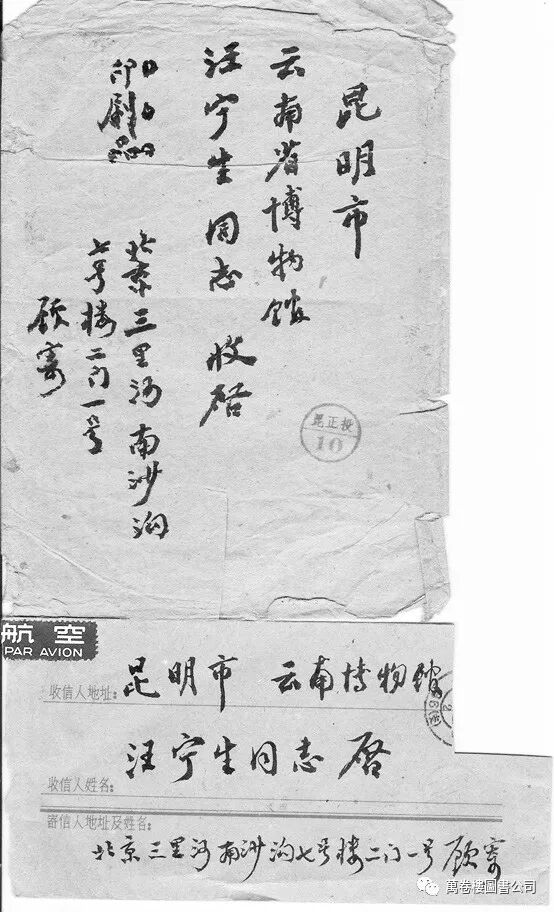 昆明市
云南省博物馆
汪宁生同志 收启
印刷品
北京三里河南沙沟
七号楼二门一号
顾寄
昆正投
10
航空
PAR AVION
收信人地址:
昆明市 云南博物馆
汪宁生同志 启
收信人姓名:
寄信人地址及姓名:
北京三里河南沙沟七号楼二门一号 顾寄
萬卷樓圖書公司